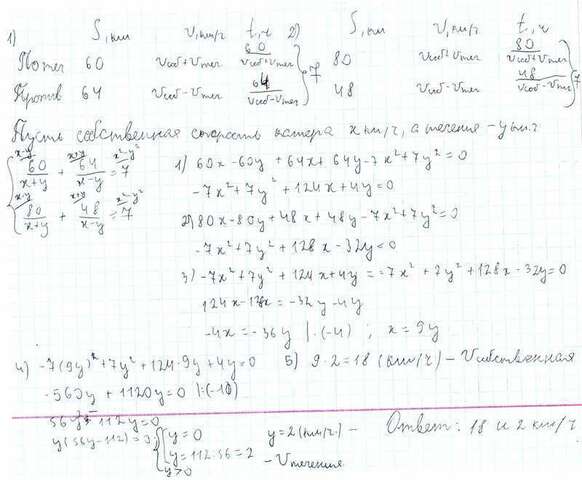 1) S, км v, км/ч t, ч 2) S, км v, км/ч t, ч
По теч 60 vсоб+vтеч 60/(vсоб+vтеч) } 7 80 vсоб+vтеч 80/(vсоб+vтеч) } 7
Против 64 vсоб-vтеч 64/(vсоб-vтеч) 48 vсоб-vтеч 48/(vсоб-vтеч)
Пусть собственная скорость катера x км/ч, а течения - y км/ч
{ 60/(x+y) + 64/(x-y) = 7
{ 80/(x+y) + 48/(x-y) = 7
1) 60x-60y+64x+64y-7x²+7y²=0
-7x²+7y²+124x+4y=0
2) 80x-80y+48x+48y-7x²+7y²=0
-7x²+7y²+128x-32y=0
3) -7x²+7y²+124x+4y=-7x²+7y²+128x-32y=0
124x-128x=-32y-4y
-4x=-36y |:(-4) ; x=9y
4) -7(9y)²+7y²+124·9y+4y=0
-560y+1120y=0 |:(-10)
56y²-112y=0
y(56y-112)=0
{ y=0
y=112:56=2
y>0
y=2(км/ч) -
- vтечения
5) 9·2=18 (км/ч) - vсобственная
Ответ: 18 и 2 км/ч